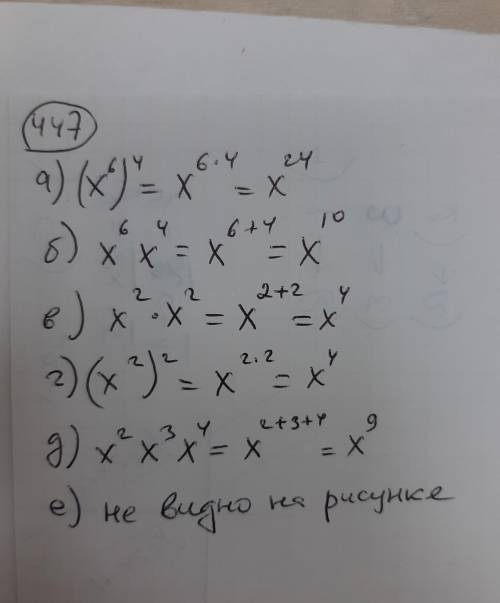 447
а) (x⁶)⁴ = x⁶·⁴ = x²⁴
б) x⁶ x⁴ = x⁶⁺⁴ = x¹⁰
в) x² · x² = x²⁺² = x⁴
г) (x²)² = x²·² = x⁴
д) x² x³ x⁴ = x²⁺³⁺⁴ = x⁹
е) не видно на рисунке